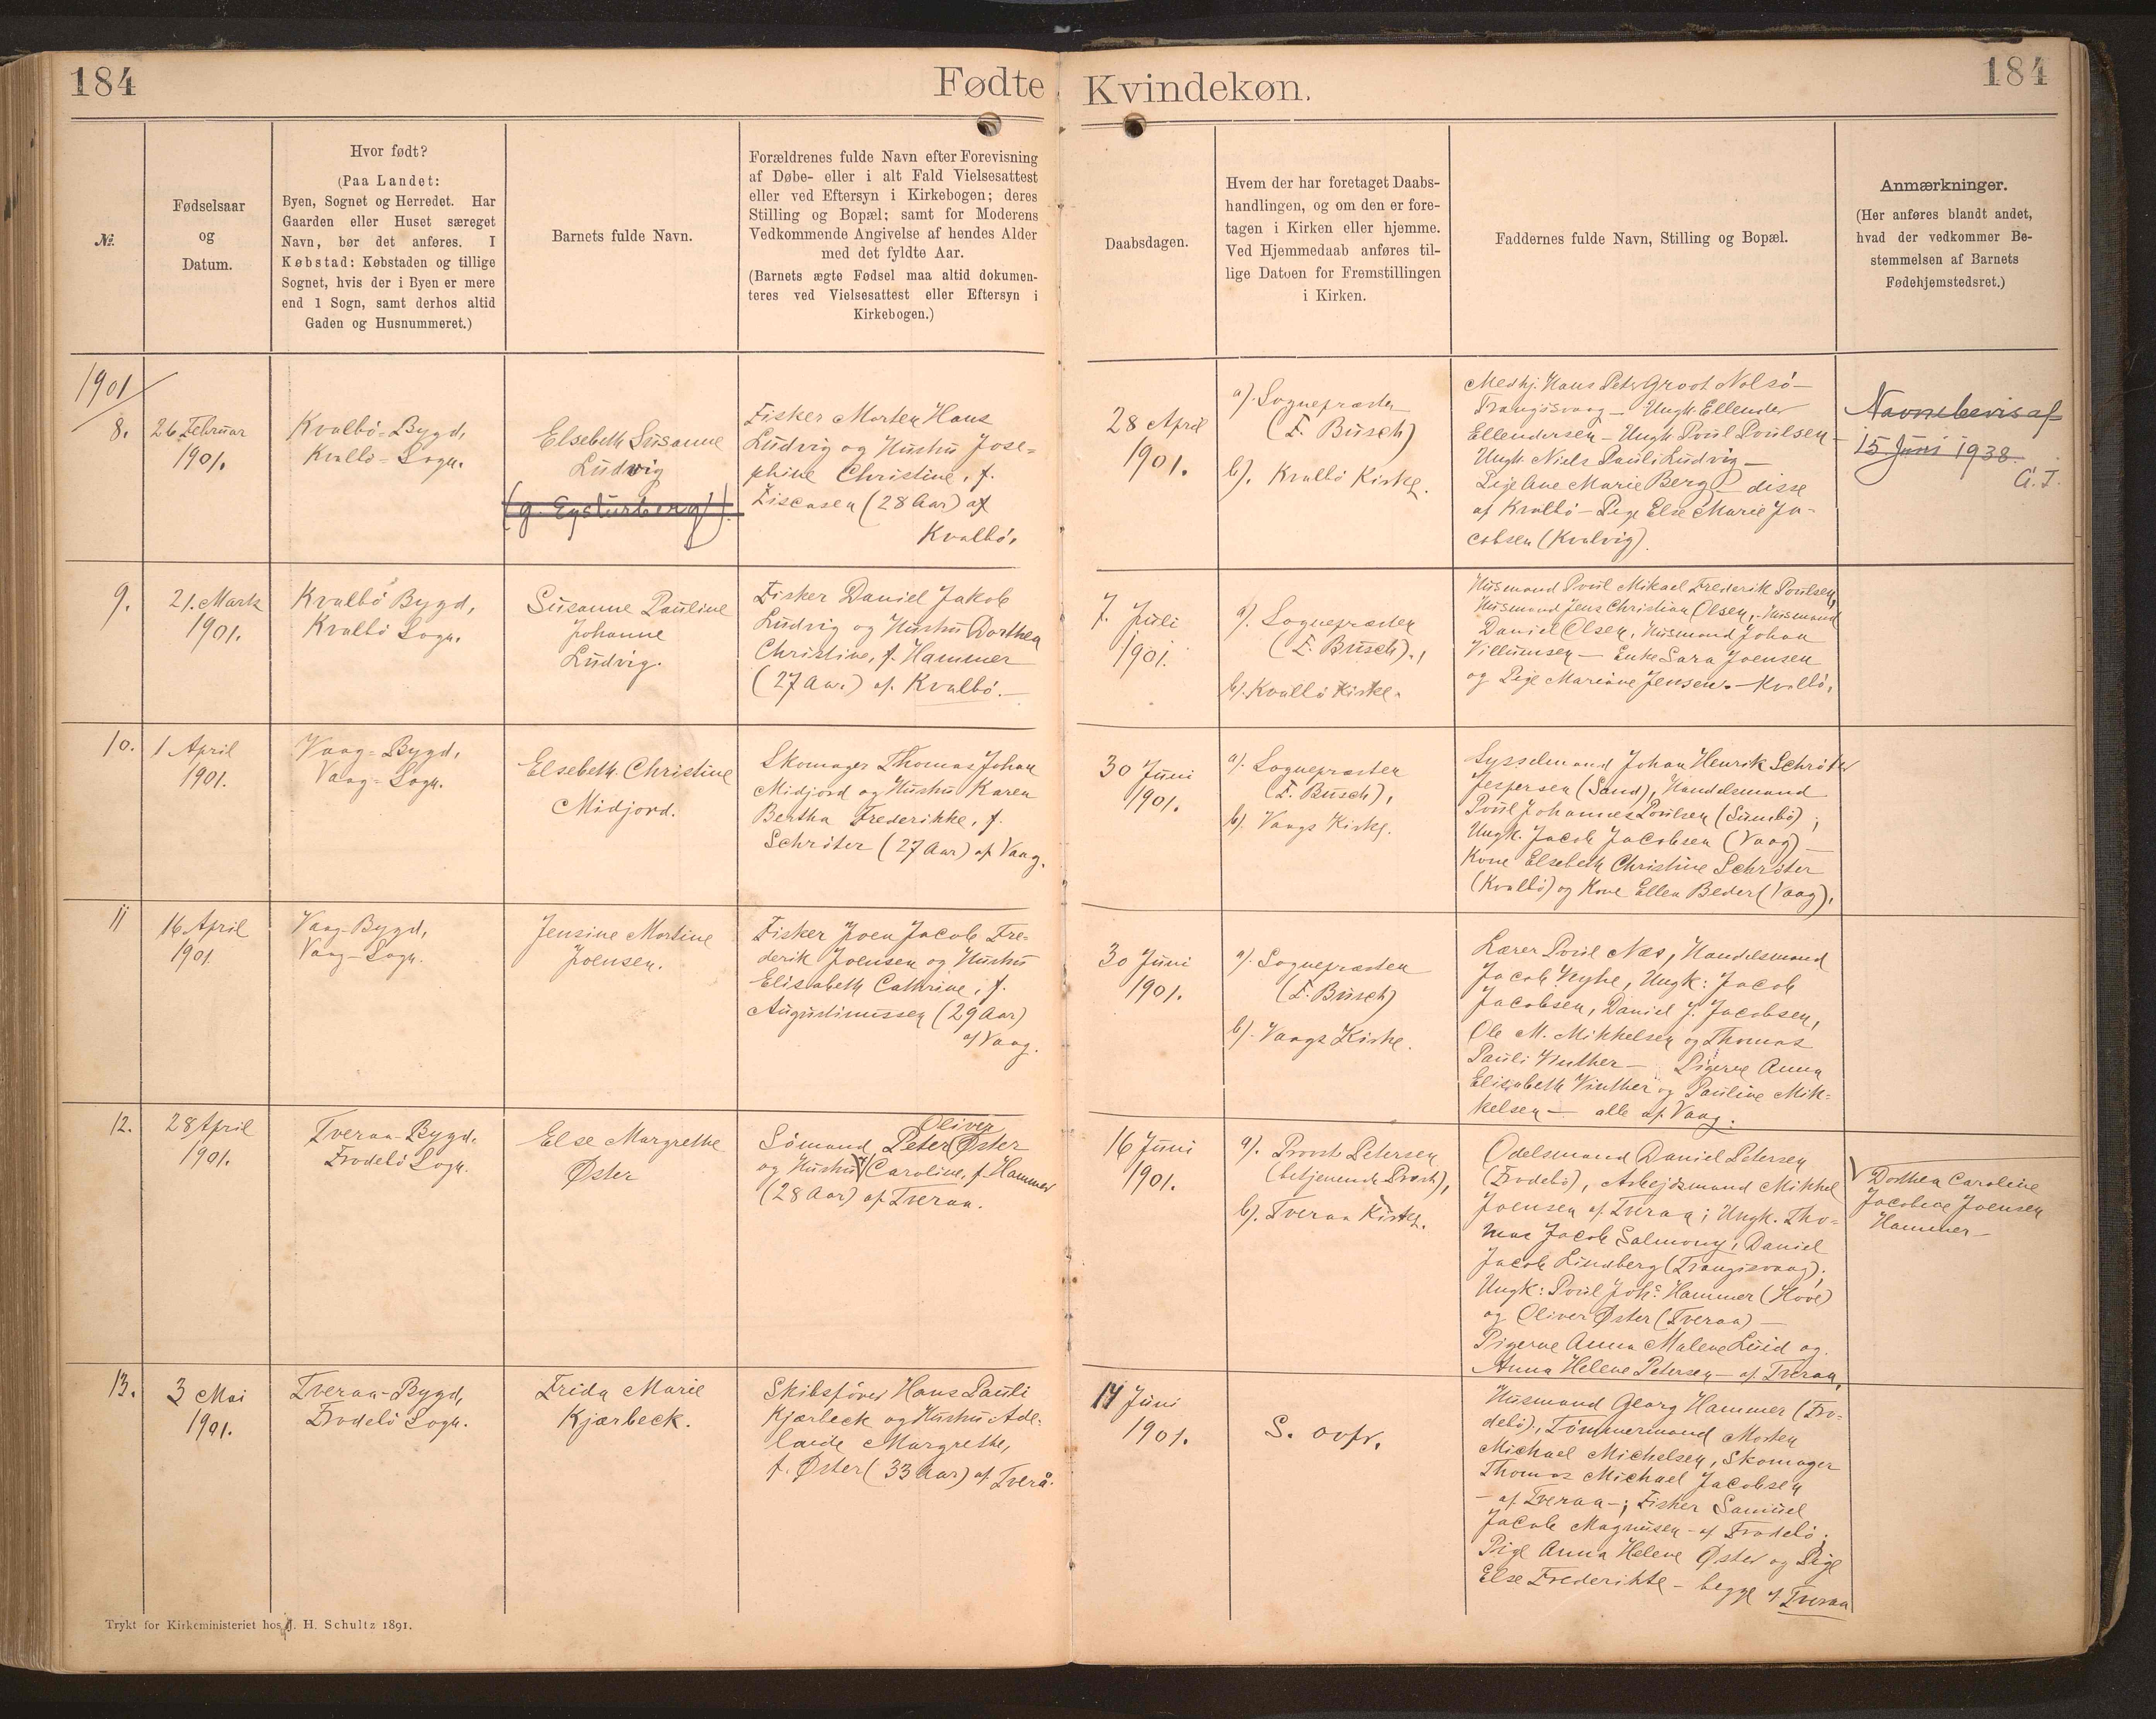 184
Fødte
Kvindekøn.
184
№.
Fødselsaar
og
Datum.
Hvor født?
(Paa Landet:
Byen, Sognet og Herredet. Har
Gaarden eller Huset særeget
Navn, bør det anføres. I
Købstad: Købstaden og tillige
Sognet, hvis der i Byen er mere
end 1 Sogn, samt derhos altid
Gaden og Husnummeret.)
Barnets fulde Navn.
Forældrenes fulde Navn efter Forevisning
af Døbe- eller i alt Fald Vielsesattest
eller ved Eftersyn i Kirkebogen; deres
Stilling og Bopæl; samt for Moderens
Vedkommende Angivelse af hendes Alder
med det fyldte Aar.
(Barnets ægte Fødsel maa altid dokumen-
teres ved Vielsesattest eller Eftersyn i
Kirkebogen.)
Daabsdagen.
Hvem der har foretaget Daabs-
handlingen, og om den er fore-
tagen i Kirken eller hjemme.
Ved Hjemmedaab anføres til-
lige Datoen for Fremstillingen
i Kirken.
Faddernes fulde Navn, Stilling og Bopæl.
Anmærkninger.
(Her anføres blandt andet,
hvad der vedkommer Be-
stemmelsen af Barnets
Fødehjemstedsret.)
1901
8.
26 Februar
1901.
Kvalbö-Bygd,
Kvalbö-Sogn.
Elsebeth Susanne
Ludwig
(g. Eysturberg)
Fisker Morten Hans
Ludvig og Hustru Jose-
phine Christine, f.
(28 Aar) af
Kvalbö.
28 April
1901.
a). Sognepræsten
(F. Busch)
b). Kvalbö Kirke.
Medhj. Hans Peter Groot Nolsö-
Trangisvaag - Ungk. Ellender
Ellendersen - Ungk Poul Poulsen -
Ungk. Niels Pauli Ludvig -
Pige Ane Marie Berg - disse
af Kvalbö - Pige Else Marie Ja-
cobsen (Kvalvig).
Navnebevis af
15. Juni 1938.
9.
21. Marts
1901.
Kvalbö Bygd,
Kvalbö Sogn.
Susanne Pauline
Johanne
Ludvig.
Fisker Daniel Jakob
Ludvig og Hustru Dorthea
Christine, f. Hammer
(27 Aar) af Kvalbö.-
7. Juli
1901.
a). Sognepræsten
(F. Busch).,
b). Kvalbö Kirke.
Husmand Poul Mikael Frederik Poulsen,
Husmand Jens Christian Olsen, Husmand
Daniel Olsen, Husmand Johan
Villumsen - Enke Sara Joensen
og Pige Mariane Jensen. - Kvalbö.
10.
1 April
1901.
Vaag-Bygd,
Vaag-Sogn.
Elsebeth Christine
Midjord.
Skomager Thomas Johan
Midjord og Hustru Karen
Bertha Frederikke, f.
Schröter (27 Aar) af Vaag.
30 Juni
1901.
a). Sognepræsten
(F. Busch),
b). Vaags Kirke.
Sysselmand Johan Henrik Schröter
Jespersen (Sand), Handelsmand
Poul Johannes Poulsen (Sumbö);
Ungk. Jacob Jacobsen (Vaag) -
Kone Elsebeth Christine Schröter
(Kvalbö) og Kone Ellen Beder (Vaag),
11
16 April
1901.
Vaag-Bygd,
Vaag-Sogn.
Jensine Mortine
Joensen.
Fisker Joen Jacob Fre-
derik Joensen og Hustru
Elisabeth Cathrine, f.
Augustinussen (29 Aar)
af Vaag.
30 Juni
1901.
a). Sognepræsten
(F. Busch)
b). Vaags Kirke.
Lærer Poul Næs, Handelsmand
Jacob Nybe, Ungk: Jacob
Jacobsen, Daniel J. Jacobsen,
Ole M. Mikkelsen og Thomas
Pauli - Pigerne Anna
Elisabeth Vinther og Pauline Mik-
kelsen - alle af Vaag.
12.
28 April
1901.
Tveraa-Bygd.
Frodebö Sogn.
Else Margrethe
Øster
Oliver
Sömand Peter Øster
og Hustru √ Caroline, f. Hammer
(28 Aar) af Tveraa.
16 Juni
1901.
a). Provst Petersen
(betjenende Provst),
b). Tveraa Kirke.
Odelsmand Daniel Petersen
(Frodebö), Arbejdsmand Mikkel
Joensen af Tveraa; Ungk. Tho-
mas Jacob Salmony, Daniel
Jacob Lindberg (Trangisvaag);
Ungk: Poul Johs. Hammer (Hove)
og Oliver Øster (Tveraa) -
Pigerne Anna Malene Luid og
Anna Helene Petersen - af Tveraa.
√ Dorthea Caroline
Jacobine Joensen
Hammer -
13.
3 Mai
1901.
Tveraa-Bygd,
Frodebö Sogn.
Frida Marie
Kjærbeck.
Skibsförer Hans Pauli
Kjærbeck og Hustru Ade-
laide Margrethe,
f. Øster (33 Aar) af Tverå.
14 Juni
1901.
S. ovfr.
Husmand Georg Hammer (Fro-
debö), Tömmermand Morten
Michael Michelsen, Skomager
Thomas Michael Jacobsen
- af Tveraa -; Fisker Samuel
Jacob Magnusen - af Frodebö;
Pige Anna Helene Øster og Pige
Else Frederikke - begge af Tveraa
Trykt for Kirkeministeriet hos J. H. Schultz 1891.